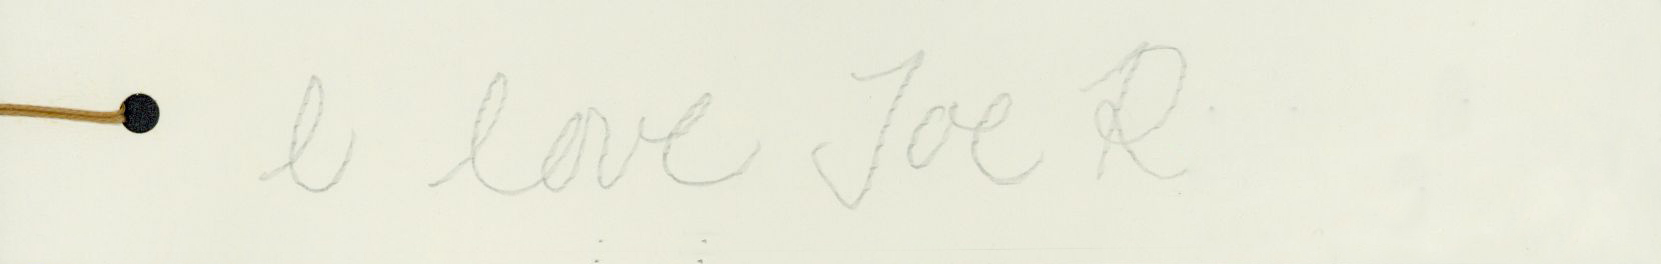 I love Joe R